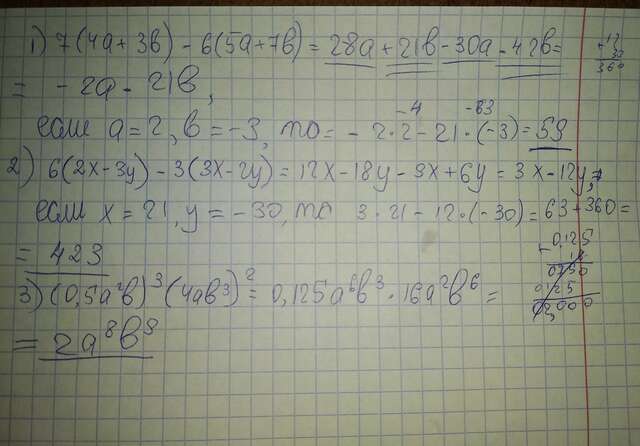 1) 7(4a+3в) - 6(5a+7в) = 28a + 21в - 30a - 42в =
= - 2a - 21в,
-4 -63
если a = 2, в = -3, то = - 2·2 - 21·(-3) = 59
2) 6(2x-3y) - 3(3x-2y) = 12x - 18y - 9x + 6y = 3x - 12y,
если x = 21, y = -30, то 3·21 - 12·(-30) = 63 + 360 =
= 423
3) (0,5a²в)³(4aв³)² = 0,125a⁶в³ · 16a²в⁶ =
= 2a⁸в⁹
12
30
360
0,125
16
0750
0125
02,000